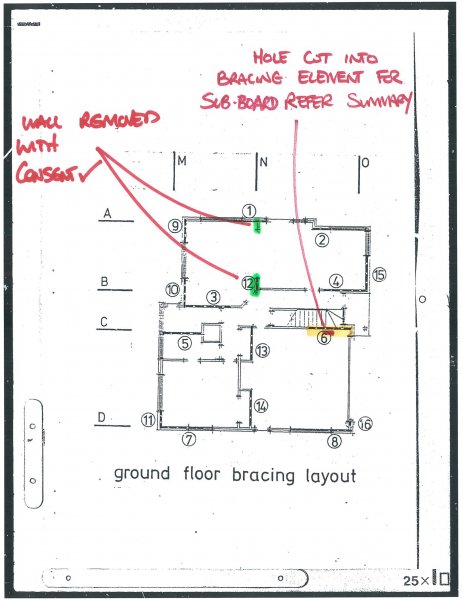 HOLE CUT INTO
BRACING ELEMENT FOR
SUB-BOARD REFER SUMMARY
WALL REMOVED
WITH
CONSENT ✓
M N O
A
1
9
2
15
B
12
4
10
3
C
6
5
13
14
D
11
7
8
16
ground floor bracing layout
25×